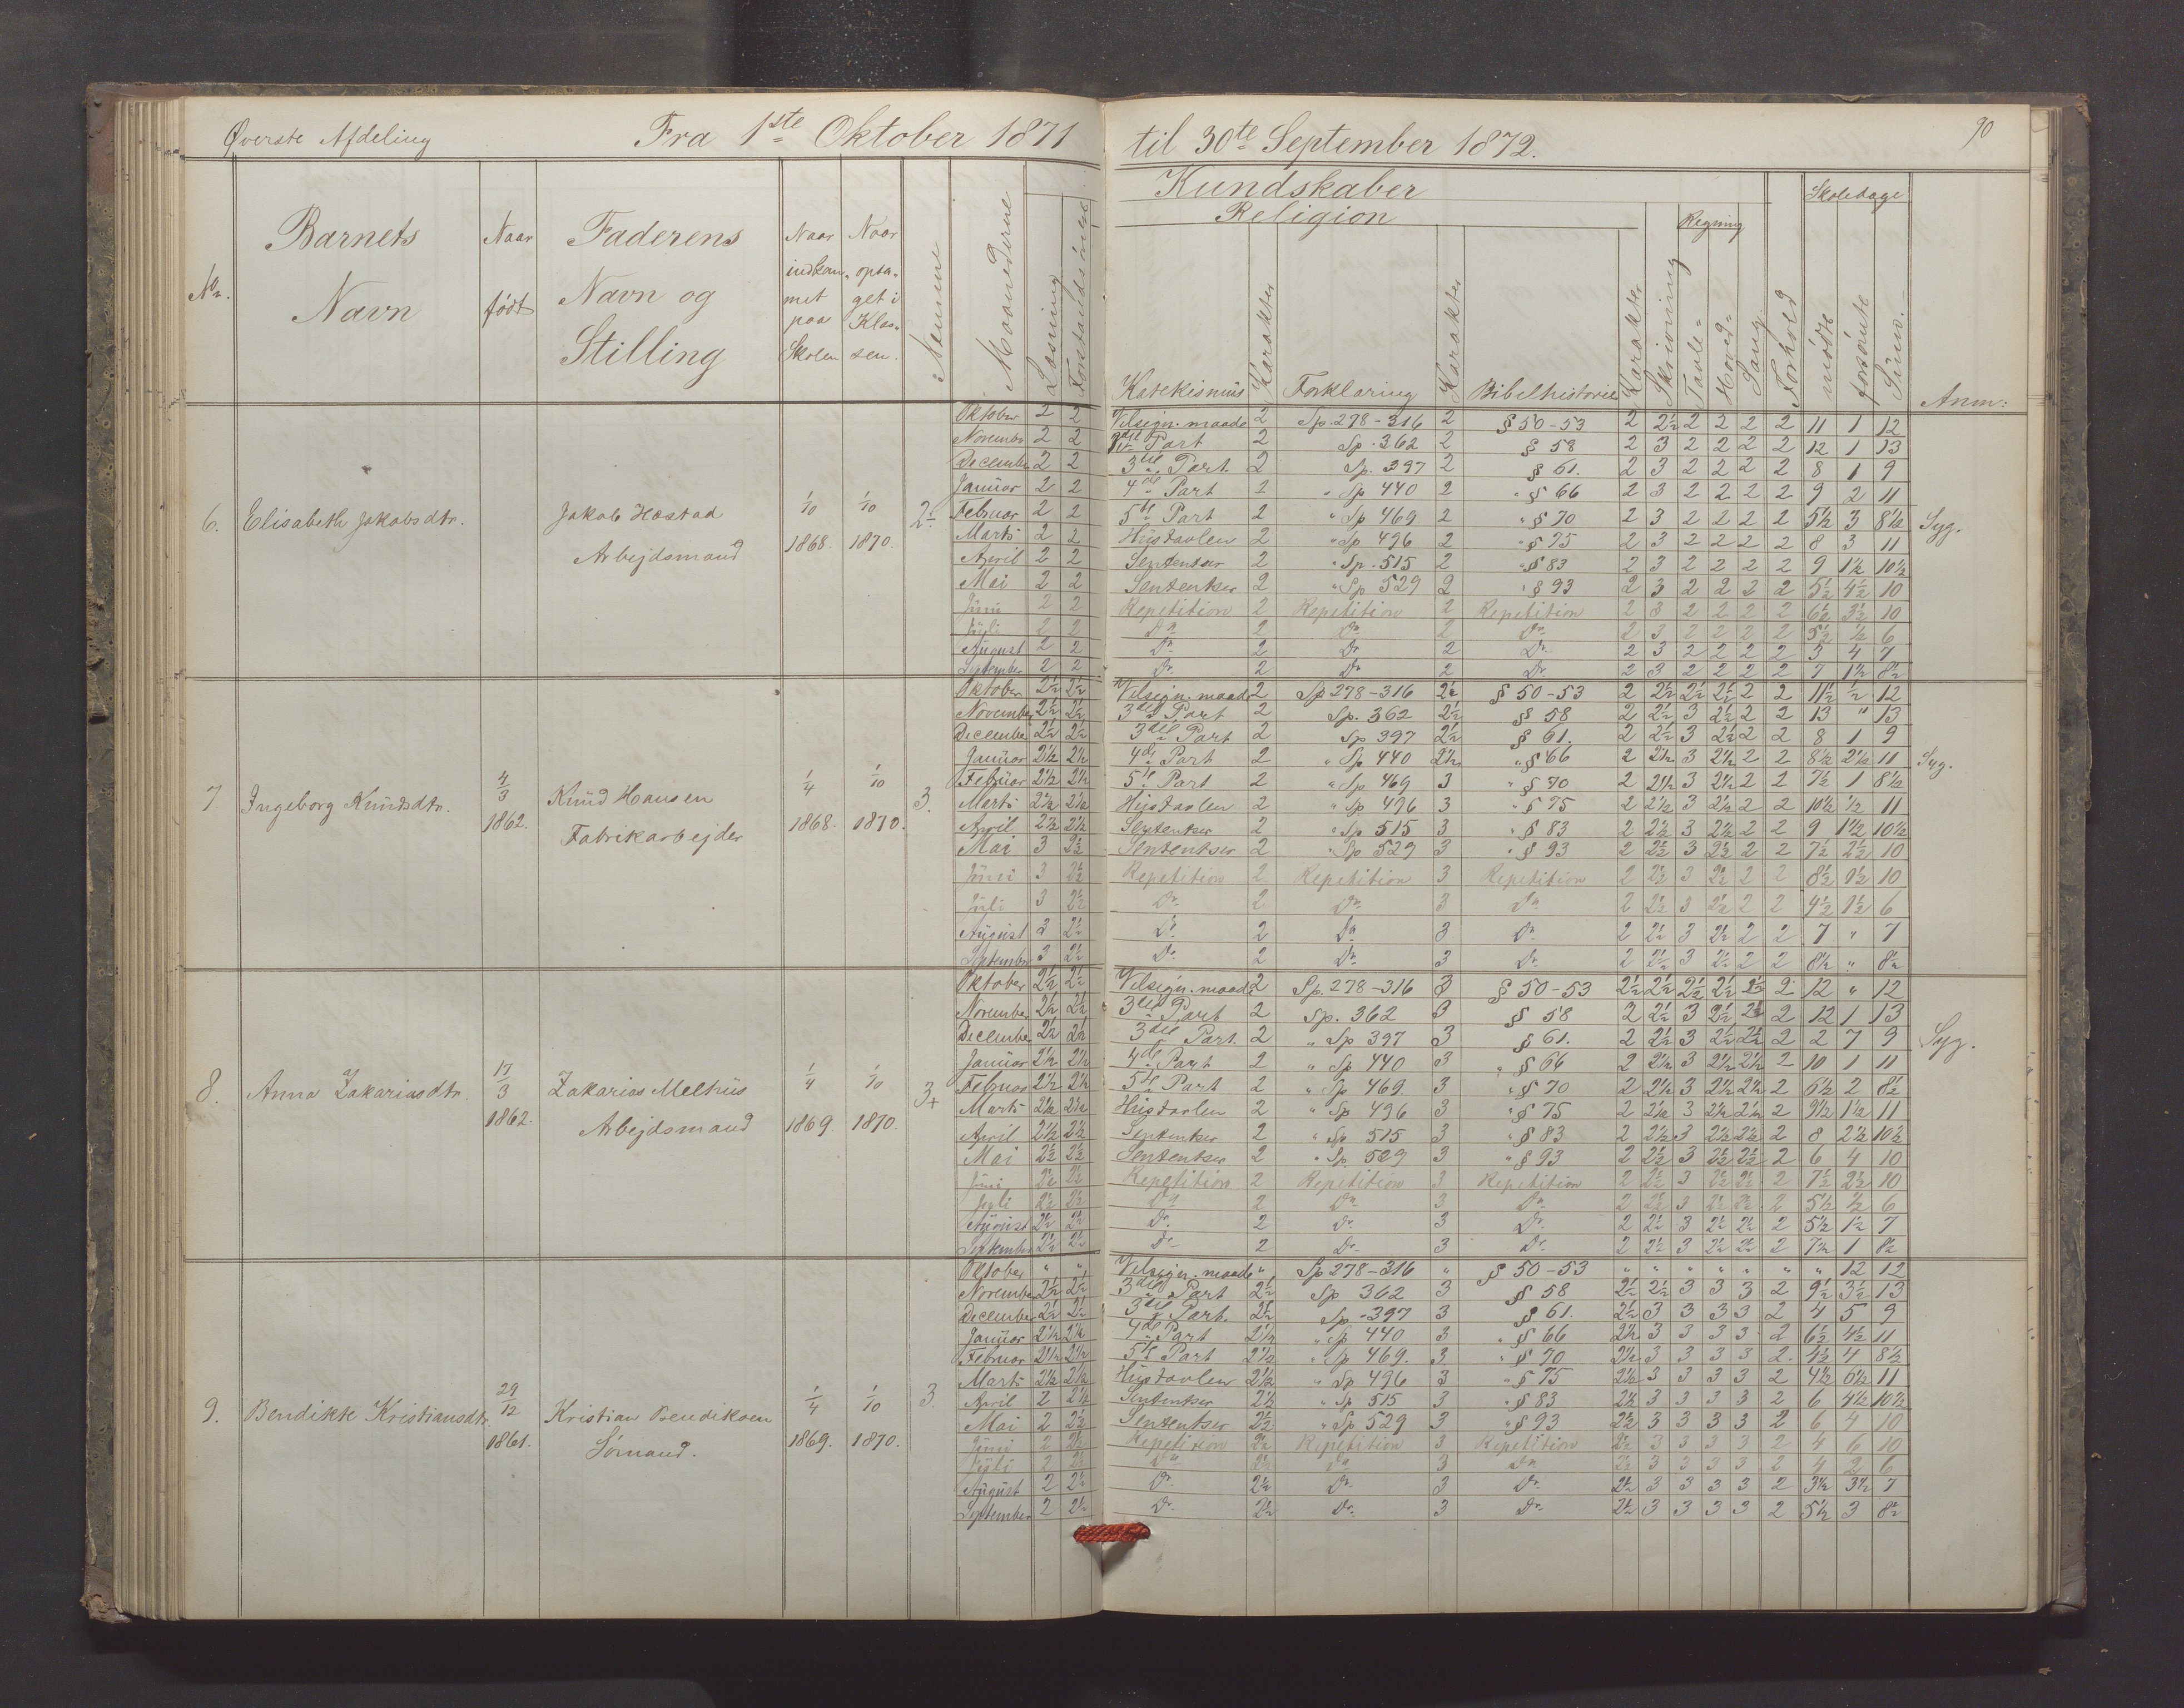 Øverste Afdeling Fra 1ste Oktober 1871 til 30te September 1872. 90
Kundskaber Skoledage
Religion Regning
No. Barnets Navn Naar født Faderens Navn og Stilling Naar indkommet paa Skolen Naar optaget i Klassen. Evnerne Maanederne Læsning Forstandsøvelse Katekismus Karakter Forklaring Karakter Bibelhistorie Karakter Skrivning Tavle- Hoved- Sang Forhold mødte forsømte Sum. Anm:
6. Elisabeth Jakobsdtr. Jakob Hæstad Arbejdsmand 1/10 1868. 1/10 1870. Syg.
Oktober 2 2 Velsign. maade 2 Sp. 278-316 2 § 50-53 2 2½ 2 2 2 2 11 1 12
November 2 2 Part 2 Sp. 362 2 § 58 2 3 2 2 2 2 12 1 13
December 2 2 3die Part 2 Sp. 397 2 § 61. 2 3 2 2 2 2 8 1 9
Januar 2 2 4de Part 2 " Sp 440 2 " § 66 2 3 2 2 2 2 9 2 11
Februar 2 2 5te Part 2 " Sp 469 2 " § 70 2 3 2 2 2 2 5½ 3 8½
Marts 2 2 Hustavlen 2 " Sp 496 2 " § 75 2 3 2 2 2 2 8 3 11
April 2 2 Sententser 2 " Sp. 515 2 " § 83 2 3 2 2 2 2 9 1½ 10½
Mai 2 2 Sententser 2 " Sp 529 2 " § 93 2 3 2 2 2 2 5½ 4½ 10
Juni 2 2 Repetition 2 Repetition 2 Repetition 2 3 2 2 2 2 6½ 3½ 10
Juli 2 2 Do 2 Do 2 Do 2 3 2 2 2 2 5½ ½ 6
August 2 2 Do 2 Do 2 Do 2 3 2 2 2 2 3 4 7
September 2 2 Do 2 Do 2 Do 2 3 2 2 2 2 7 1½ 8½
7. Ingeborg Knudsdtr. 4/3 1862. Knud Hansen Fabrikarbejder 1/4 1868. 1/10 1870. 3. Syg.
Oktober 2½ 2½ Velsign. maade 2 Sp 278-316 2½ § 50-53 2 2½ 2½ 2½ 2 2 11½ ½ 12
November 2½ 2½ 3die Part 2 Sp. 362 2½ § 58 2 2½ 3 2½ 2 2 13 " 13
December 2½ 2½ 3die Part 2 Sp 397 2½ § 61. 2 2½ 3 2½ 2 2 8 1 9
Januar 2½ 2½ 4de Part 2 " Sp 440 2½ " § 66 2 2½ 3 2½ 2 2 8½ 2½ 11
Februar 2½ 2½ 5te Part 2 " Sp. 469 3 " § 70 2 2½ 3 2½ 2 2 7½ 1 8½
Marts 2½ 2½ Hustavlen 2 " Sp 496 3 " § 75 2 2½ 3 2½ 2 2 10½ ½ 11
April 2½ 2½ Sententser 2 " Sp 515 3 " § 83 2 2½ 3 2½ 2 2 9 1½ 10½
Mai 3 2½ Sententser 2 " Sp 529 3 " § 93 2 2½ 3 2½ 2 2 7½ 2½ 10
Juni 3 2½ Repetition 2 Repetition 3 Repetition 2 2½ 3 2½ 2 2 8½ 1½ 10
Juli 3 2½ Do 2 Do 3 Do 2 2½ 3 2½ 2 2 4½ 1½ 6
August 3 2½ Do 2 Do 3 Do 2 2½ 3 2½ 2 2 7 " 7
September 3 2½ Do 2 Do 3 Do 2 2½ 3 2½ 2 2 8½ " 8½
8. Anna Zakariasdtr. 17/3 1862. Zakarias Melhus Arbejdsmand 1/4 1869. 1/10 1870. 3+ Syg.
Oktober 2½ 2½ Velsign. maade 2 Sp. 278-316 3 § 50-53 2½ 2½ 2½ 2½ 2½ 2 12 " 12
November 2½ 2½ 3die Part 2 Sp. 362 3 § 58 2 2½ 3 2½ 2½ 2 12 1 13
December 2½ 2½ 3die Part 2 " Sp 397 3 § 61. 2 2½ 3 2½ 2½ 2 2 7 9
Januar 2½ 2½ 4de Part 2 " Sp 440 3 " § 66 2 2½ 3 2½ 2½ 2 10 1 11
Februar 2½ 2½ 5te Part 2 " Sp. 469. 3 " § 70 2 2½ 3 2½ 2½ 2 6½ 2 8½
Marts 2½ 2½ Hustavlen 2 " Sp 496 3 " § 75 2 2½ 3 2½ 2½ 2 9½ 1½ 11
April 2½ 2½ Sententser 2 " Sp 515 3 " § 83 2 2½ 3 2½ 2½ 2 8 2½ 10½
Mai 2½ 2½ Sententser 2 " Sp. 529 3 " § 93 2 2½ 3 2½ 2½ 2 6 4 10
Juni 2½ 2½ Repetition 2 Repetition 3 Repetition 2 2½ 3 2½ 2½ 2 7½ 2½ 10
Juli 2½ 2½ Do 2 Do 3 Do 2 2½ 3 2½ 2½ 2 5½ ½ 6
August 2½ 2½ Do 2 Do 3 Do 2 2½ 3 2½ 2½ 2 5½ 1½ 7
September 2½ 2½ Do 2 Do 3 Do 2 2½ 3 2½ 2½ 2 7½ 1 8½
9. Bendikte Kristiansdtr. 29/12 1861. Kristian Bendiksen Sømand. 1/4 1869. 1/10 1870. 3
Oktober " " Velsign. maade " Sp 278-316 " § 50-53 " " " " " " " 12 12
November 2½ 2½ 3die Part 2½ Sp 362 3 § 58 2½ 2½ 3 3 3 2 9½ 3½ 13
December 2½ 2½ 3die Part. 2½ Sp. 397 3 § 61. 2½ 3 3 3 3 2 4 5 9
Januar 2½ 2½ 4de Part 2½ " Sp 440 3 " § 66 2½ 3 3 3 3 2 6½ 4½ 11
Februar 2½ 2½ 5te Part 2½ " Sp 469. 3 " § 70 2½ 3 3 3 3 2 4½ 4 8½
Marts 2½ 2½ Hustavlen 2½ " Sp 496 3 " § 75 2½ 3 3 3 3 2 4½ 6½ 11
April 2 2½ Sententser 2½ " Sp 515 3 " § 83 2½ 3 3 3 3 2 6 4½ 10½
Mai 2 2½ Sententser 2½ " Sp 529 3 " § 93 2½ 3 3 3 3 2 6 4 10
Juni 2 2½ Repetition 2½ Repetition 3 Repetition 2½ 3 3 3 3 2 4 6 10
Juli 2 2½ Do 2½ Do 3 Do 2½ 3 3 3 3 2 4 2 6
August 2 2½ Do 2½ Do 3 Do 2½ 3 3 3 3 2 3½ 3½ 7
September 2 2½ Do 2½ Do 3 Do 2½ 3 3 3 3 2 5½ 3 8½